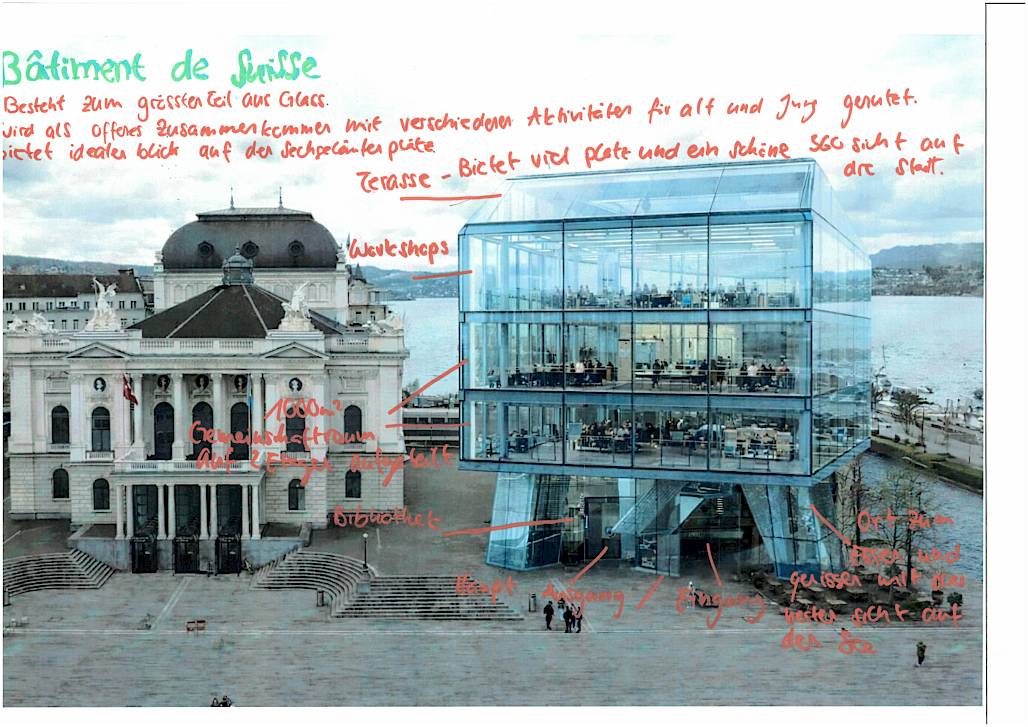 Bâtiment de Suisse
Besteht zum grössten Teil aus Glass.
wird als offenes Zusammenkommen mit verschiedenen Aktivitäten für alt und Jung genutzt.
bietet idealen blick auf den Sechseläuten platz
Terasse - Bietet viel platz und ein schöne 360 sicht auf
die Stadt.
Workshops
1000m²
Gemeinschaftraum
auf 2 Etagen aufgeteilt
Bibliothek
Haupt Ausgang / Eingang
Ort zum
Essen und
geniessen mit der
sicht auf
den See